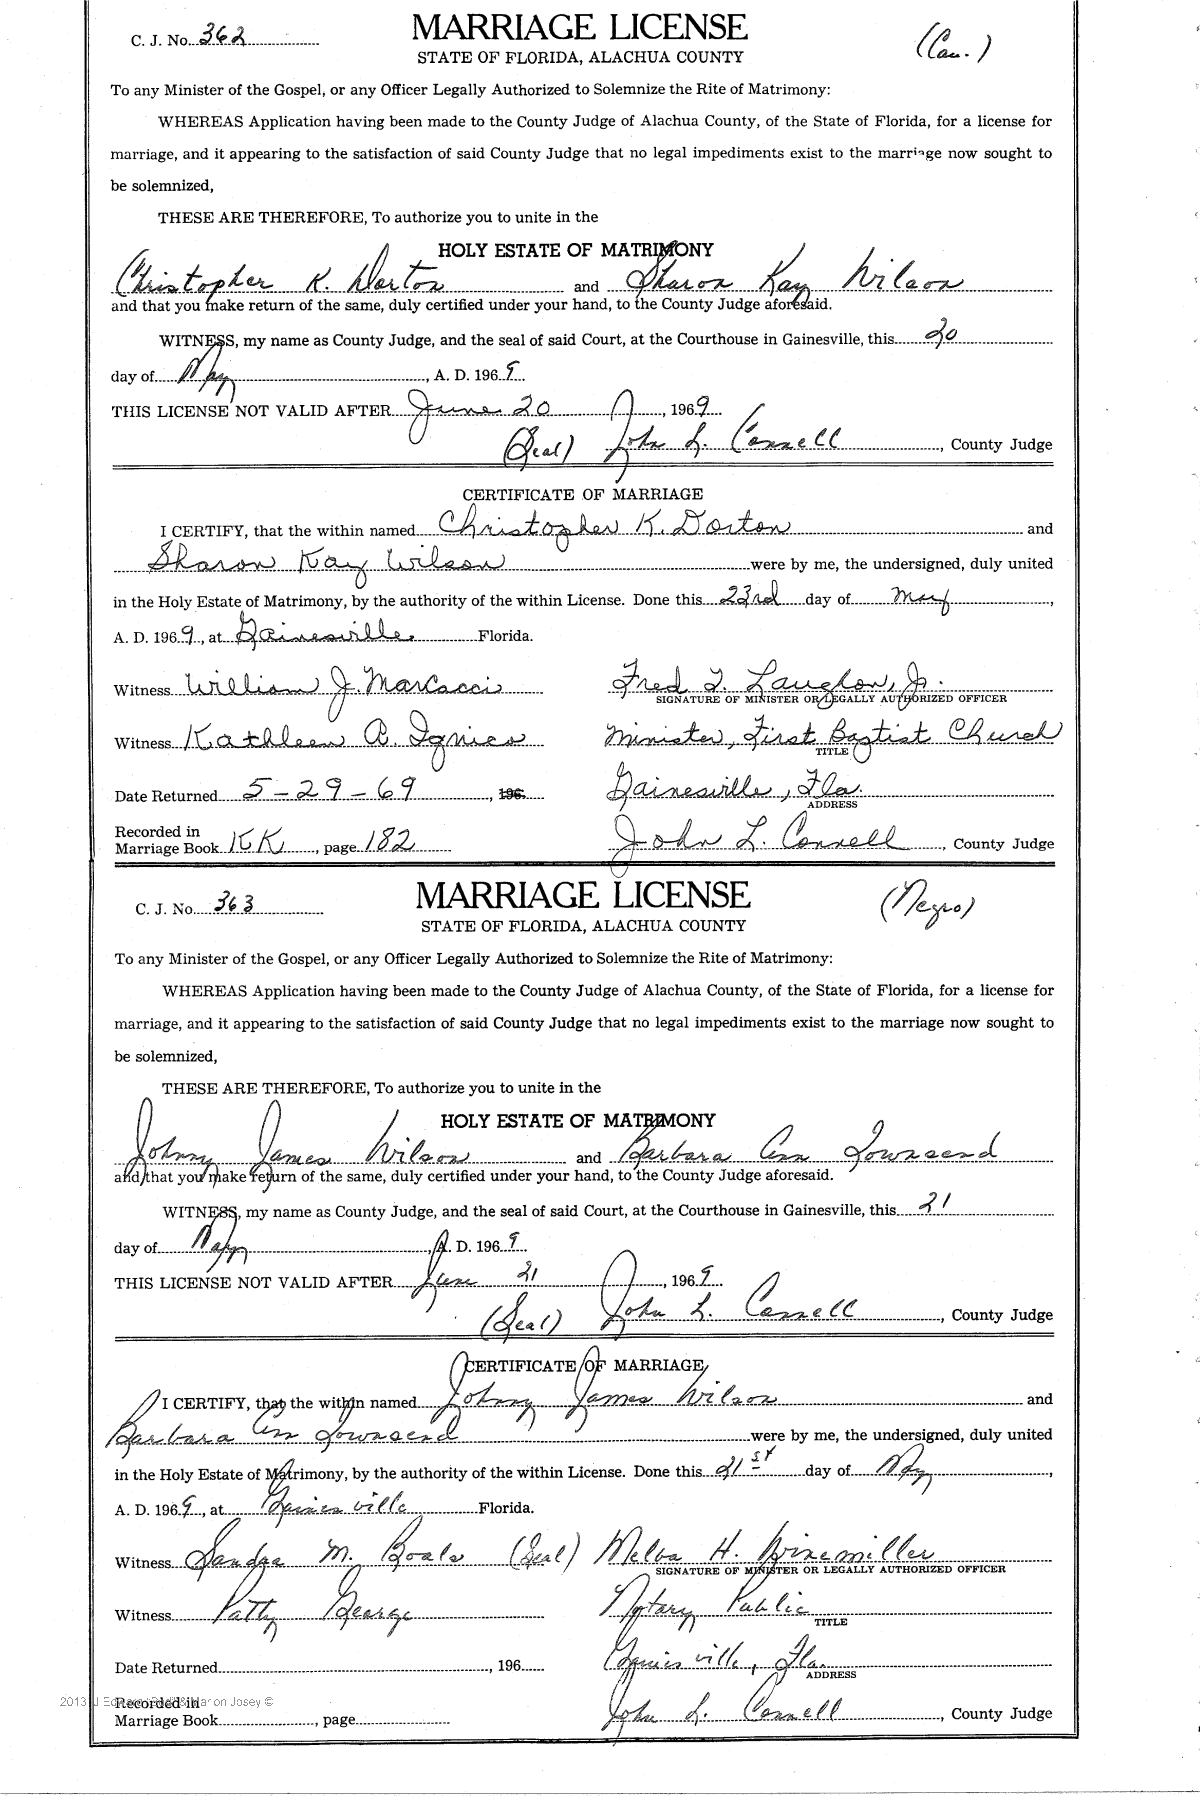 C. J. No. 362
MARRIAGE LICENSE
(Cau.)
STATE OF FLORIDA, ALACHUA COUNTY
To any Minister of the Gospel, or any Officer Legally Authorized to Solemnize the Rite of Matrimony:
WHEREAS Application having been made to the County Judge of Alachua County, of the State of Florida, for a license for
marriage, and it appearing to the satisfaction of said County Judge that no legal impediments exist to the marriage now sought to
be solemnized,
THESE ARE THEREFORE, To authorize you to unite in the
HOLY ESTATE OF MATRIMONY
Christopher K. Dorton and Sharon Kay Wilson
and that you make return of the same, duly certified under your hand, to the County Judge aforesaid.
WITNESS, my name as County Judge, and the seal of said Court, at the Courthouse in Gainesville, this 20
day of May, A. D. 1969
THIS LICENSE NOT VALID AFTER June 20, 1969
(Seal) John L. Connell, County Judge
CERTIFICATE OF MARRIAGE
I CERTIFY, that the within named Christopher K. Dorton and
Sharon Kay Wilson were by me, the undersigned, duly united
in the Holy Estate of Matrimony, by the authority of the within License. Done this 23rd day of May,
A. D. 1969, at Gainesville Florida.
Witness William J. Marcacci Fred T. Laughon, Jr.
SIGNATURE OF MINISTER OR LEGALLY AUTHORIZED OFFICER
Witness Kathleen A. Minister, First Baptist Church
TITLE
Date Returned 5-29-69, 196 Gainesville, Fla.
ADDRESS
Recorded in
Marriage Book KK, page 182 John L. Connell, County Judge
C. J. No. 363
MARRIAGE LICENSE
(Negro)
STATE OF FLORIDA, ALACHUA COUNTY
To any Minister of the Gospel, or any Officer Legally Authorized to Solemnize the Rite of Matrimony:
WHEREAS Application having been made to the County Judge of Alachua County, of the State of Florida, for a license for
marriage, and it appearing to the satisfaction of said County Judge that no legal impediments exist to the marriage now sought to
be solemnized,
THESE ARE THEREFORE, To authorize you to unite in the
HOLY ESTATE OF MATRIMONY
Johnny James Wilson and Barbara Ann Townsend
and that you make return of the same, duly certified under your hand, to the County Judge aforesaid.
WITNESS, my name as County Judge, and the seal of said Court, at the Courthouse in Gainesville, this 21
day of May, A. D. 1969
THIS LICENSE NOT VALID AFTER June 21, 1969
(Seal) John L. Connell, County Judge
CERTIFICATE OF MARRIAGE
I CERTIFY, that the within named Johnny James Wilson and
Barbara Ann Townsend were by me, the undersigned, duly united
in the Holy Estate of Matrimony, by the authority of the within License. Done this 21st day of May,
A. D. 1969, at Gainesville Florida.
Witness Sandra M. Boals (Seal) Melba H. Winemiller
SIGNATURE OF MINISTER OR LEGALLY AUTHORIZED OFFICER
Witness Patty George Notary Public
TITLE
Date Returned, 196 Gainesville, Fla.
ADDRESS
Recorded in
Marriage Book, page John L. Connell, County Judge